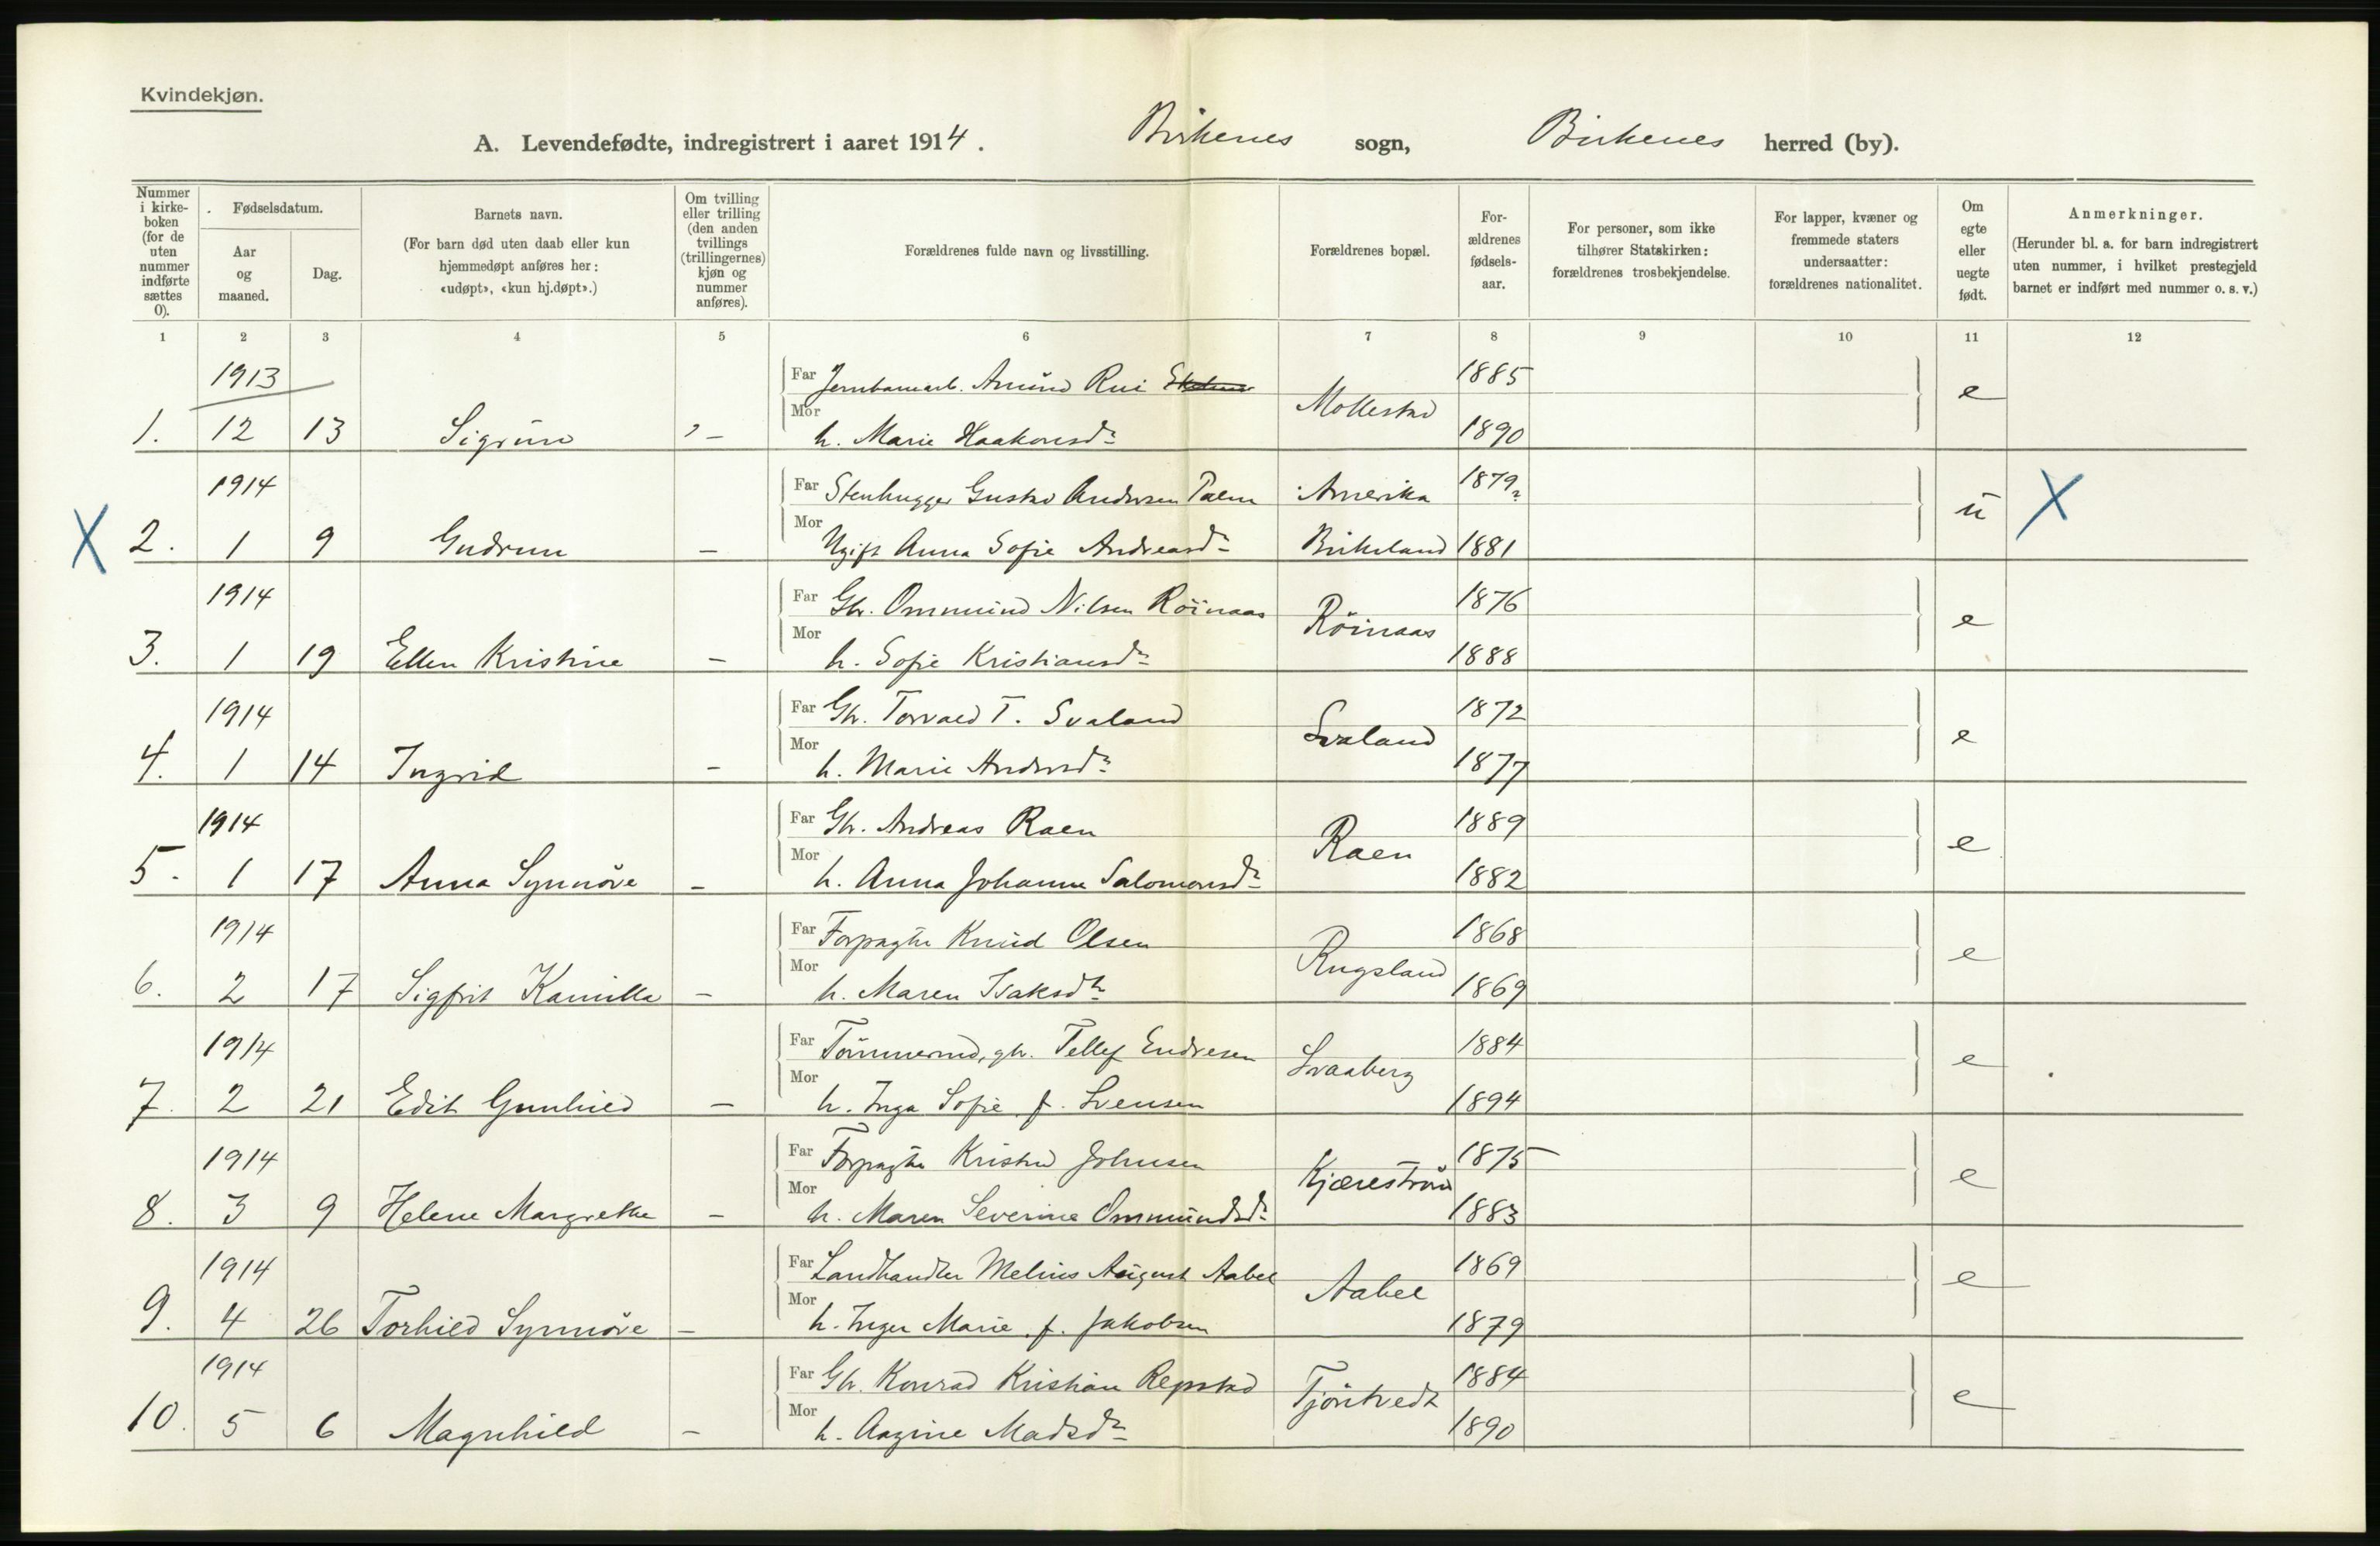 Kvindekjøn.
A. Levendefødte, indregistrert i aaret 1914. Birkenes sogn, Birkenes herred (by).
Nummer i kirke-boken (for de uten nummer indførte sættes 0).
Fødselsdatum.
Aar og maaned.
Dag.
Barnets navn.
(For barn død uten daab eller kun hjemmedøpt anføres her: «udøpt», «kun hj.døpt».)
Om tvilling eller trilling (den anden tvillings (trillingernes) kjøn og nummer anføres).
Forældrenes fulde navn og livsstilling.
Forældrenes bopæl.
For-ældrenes fødsels-aar.
For personer, som ikke tilhører Statskirken: forældrenes trosbekjendelse.
For lapper, kvæner og fremmede staters undersaatter: forældrenes nationalitet.
Om egte eller uegte født.
Anmerkninger.
(Herunder bl. a. for barn indregistrert uten nummer, i hvilket prestegjeld barnet er indført med nummer o. s. v.)
1 2 3 4 5 6 7 8 9 10 11 12
1913 Far Jernbanearb. Amund Rui 1885
Mollestad e
1. 12 13 Sigrun - Mor h. Marie Haakonsdr 1890
1914 Far Stenhugger Gustav Andersen Palm Amerika 1879?
u X
X 2. 1 9 Gudrun - Mor Ugift Anna Sofie Andreasdr Birkeland 1881
1914 Far Gbr. Ommund Nilsen Röinaas 1876
Röinaas e
3. 1 19 Ellen Kristine - Mor h. Sofie Kristiansdr 1888
1914 Far Gbr. Torvald T. Svaland 1872
Svaland e
4. 1 14 Ingrid - Mor h. Marie Andersdr 1877
1914 Far Gbr. Andreas Raen 1889
Raen e
5. 1 17 Anna Synnöve - Mor h. Anna Johanne Salomonsdr 1882
1914 Far Forpagter Knud Olsen 1868
Rugsland e
6. 2 17 Sigfrit Kamilla - Mor h. Maren Isaksdtr 1869
1914 Far Tömmermd, gbr. Tellef Endresen 1884
Svaaberg e
7. 2 21 Edit Gunhild - Mor h. Inga Sofie f. Svensen 1894
1914 Far Forpagter Kristen Johnsen 1875
e
8. 3 9 Helene Margrethe - Mor h. Maren Severine Ommundsdr 1883
1914 Far Landhandler Melius August Aabel 1869
Aabel e
9. 4 26 Torhild Synnöve - Mor h. Inger Marie f. Jakobsen 1879
1914 Far Gbr. Konrad Kristian Repstad 1884
Tjöntvedt e
10. 5 6 Magnhild - Mor h. Aagine Madsdr 1890